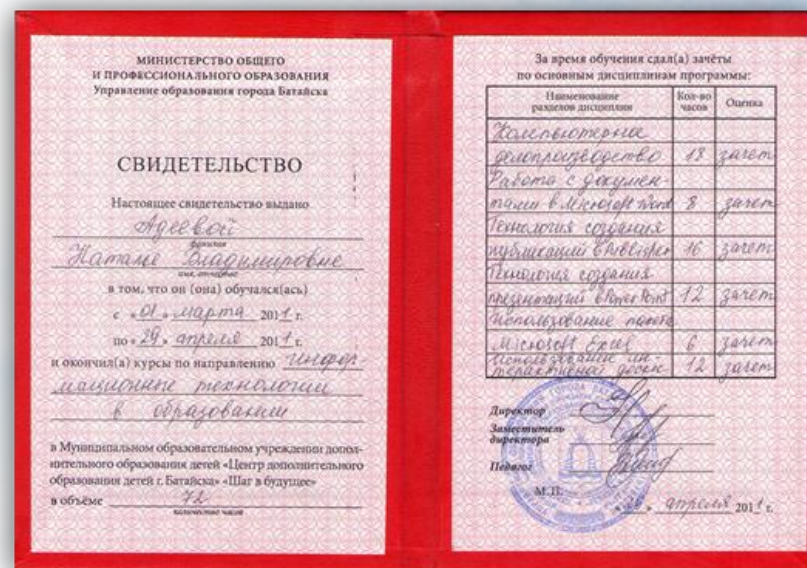 МИНИСТЕРСТВО ОБЩЕГО
И ПРОФЕССИОНАЛЬНОГО ОБРАЗОВАНИЯ
Управление образования города Батайска
СВИДЕТЕЛЬСТВО
Настоящее свидетельство выдано
Адеевой
фамилия
Наталье Владимировне
имя, отчество
в том, что он (она) обучался(ась)
с «01» марта 2011 г.
по «29» апреля 2011 г.
и окончил(а) курсы по направлению инфор-
мационные технологии
в образовании
в Муниципальном образовательном учреждении допол-
нительного образования детей «Центр дополнительного
образования детей г. Батайска» «Шаг в будущее»
в объёме 72
количество часов
За время обучения сдал(а) зачёты
по основным дисциплинам программы:
Наименование разделов дисциплин Кол-во часов Оценка
Компьютерное
делопроизводство 18 зачет
Работа с докумен-
тами в Microsoft Word 8 зачет
Технология создания
публикаций в Publisher 16 зачет
Технология создания
презентаций в Power Point 12 зачет
Использование пакета
Microsoft Excel 6 зачет
Использование ин-
терактивной доски 12 зачет
Директор
Заместитель
директора
Педагог
М.П.
апреля 2011 г.